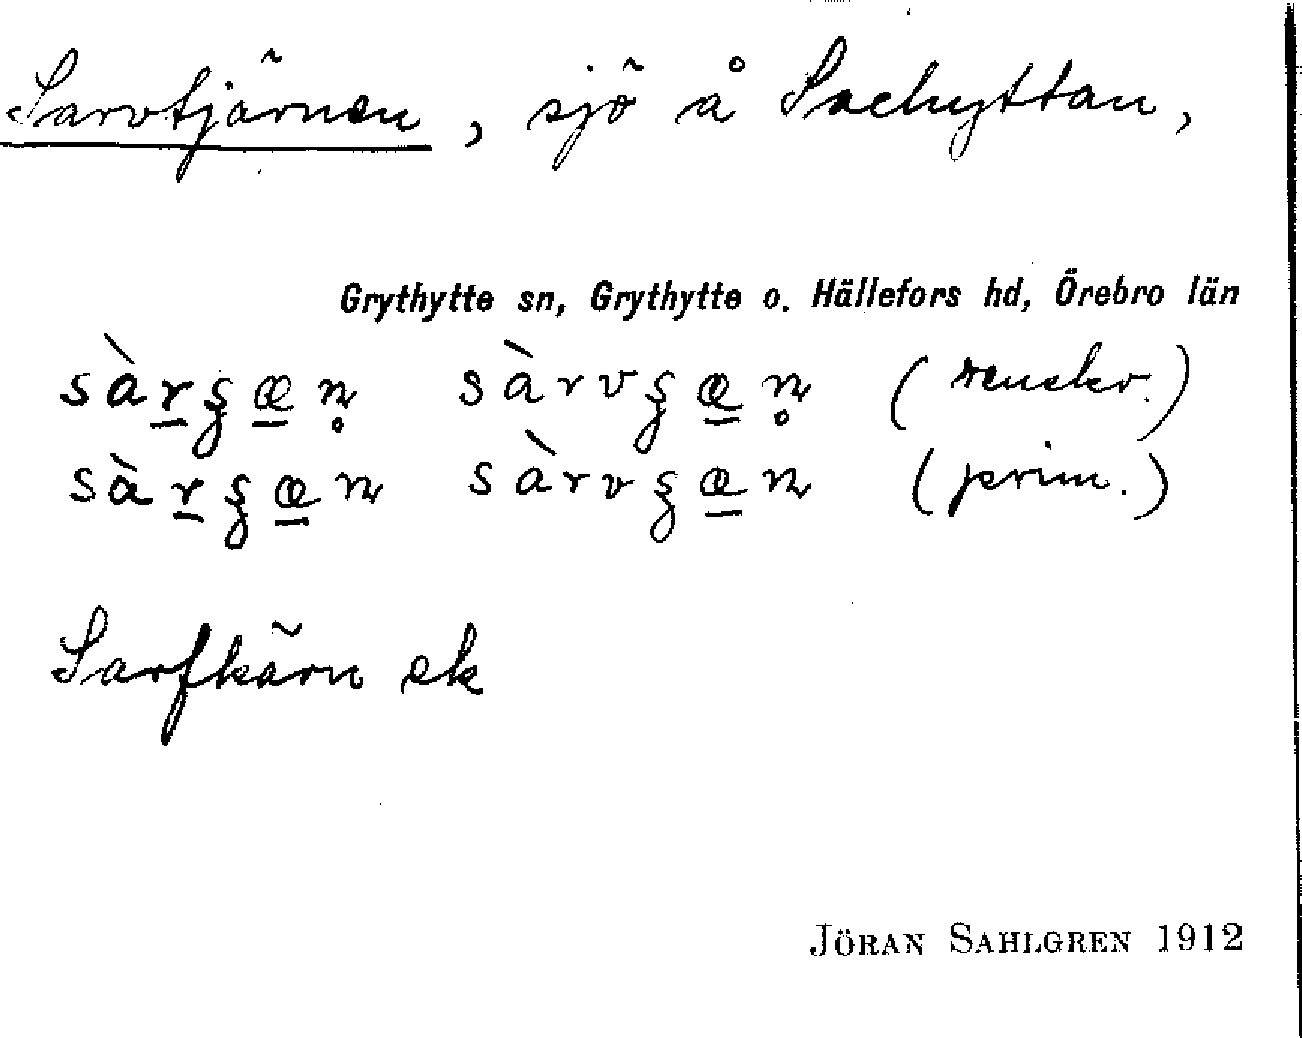 Sarvtjärnen, sjö å Saxhyttan,
Grythytte sn, Grythytte o. Hällefors hd, Örebro län
sàr̲ʂæ̲n̥ sàrvʂæ̲n̥ (renskr.)
sàr̲ʂæ̲n sàrvʂæ̲n (prim.)
Sarfkärn ek
JÖRAN SAHLGREN 1912